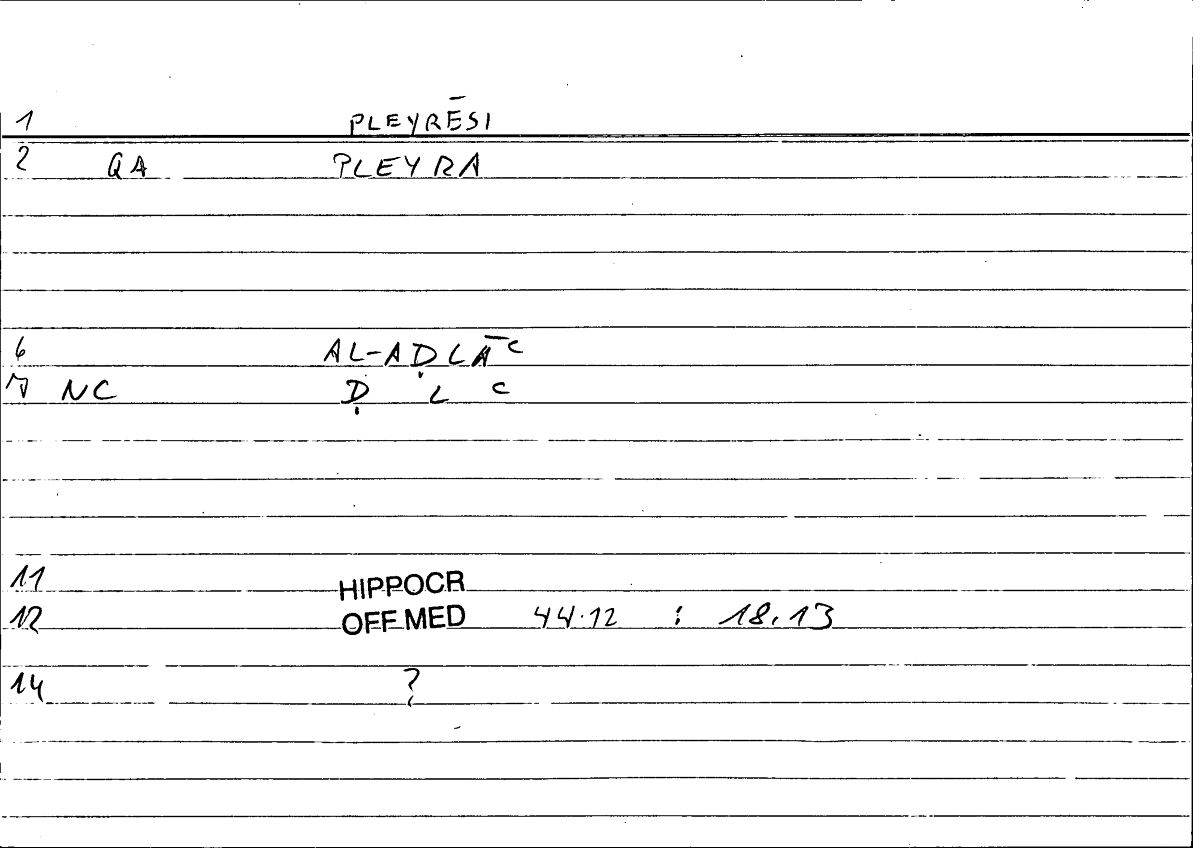 1 PLEYRĒSI
2 QA PLEYRA
6 AL-AḌLĀc
7 NC Ḍ L c
11 HIPPOCR
12 OFF.MED 44.12 : 18.13
14 ?